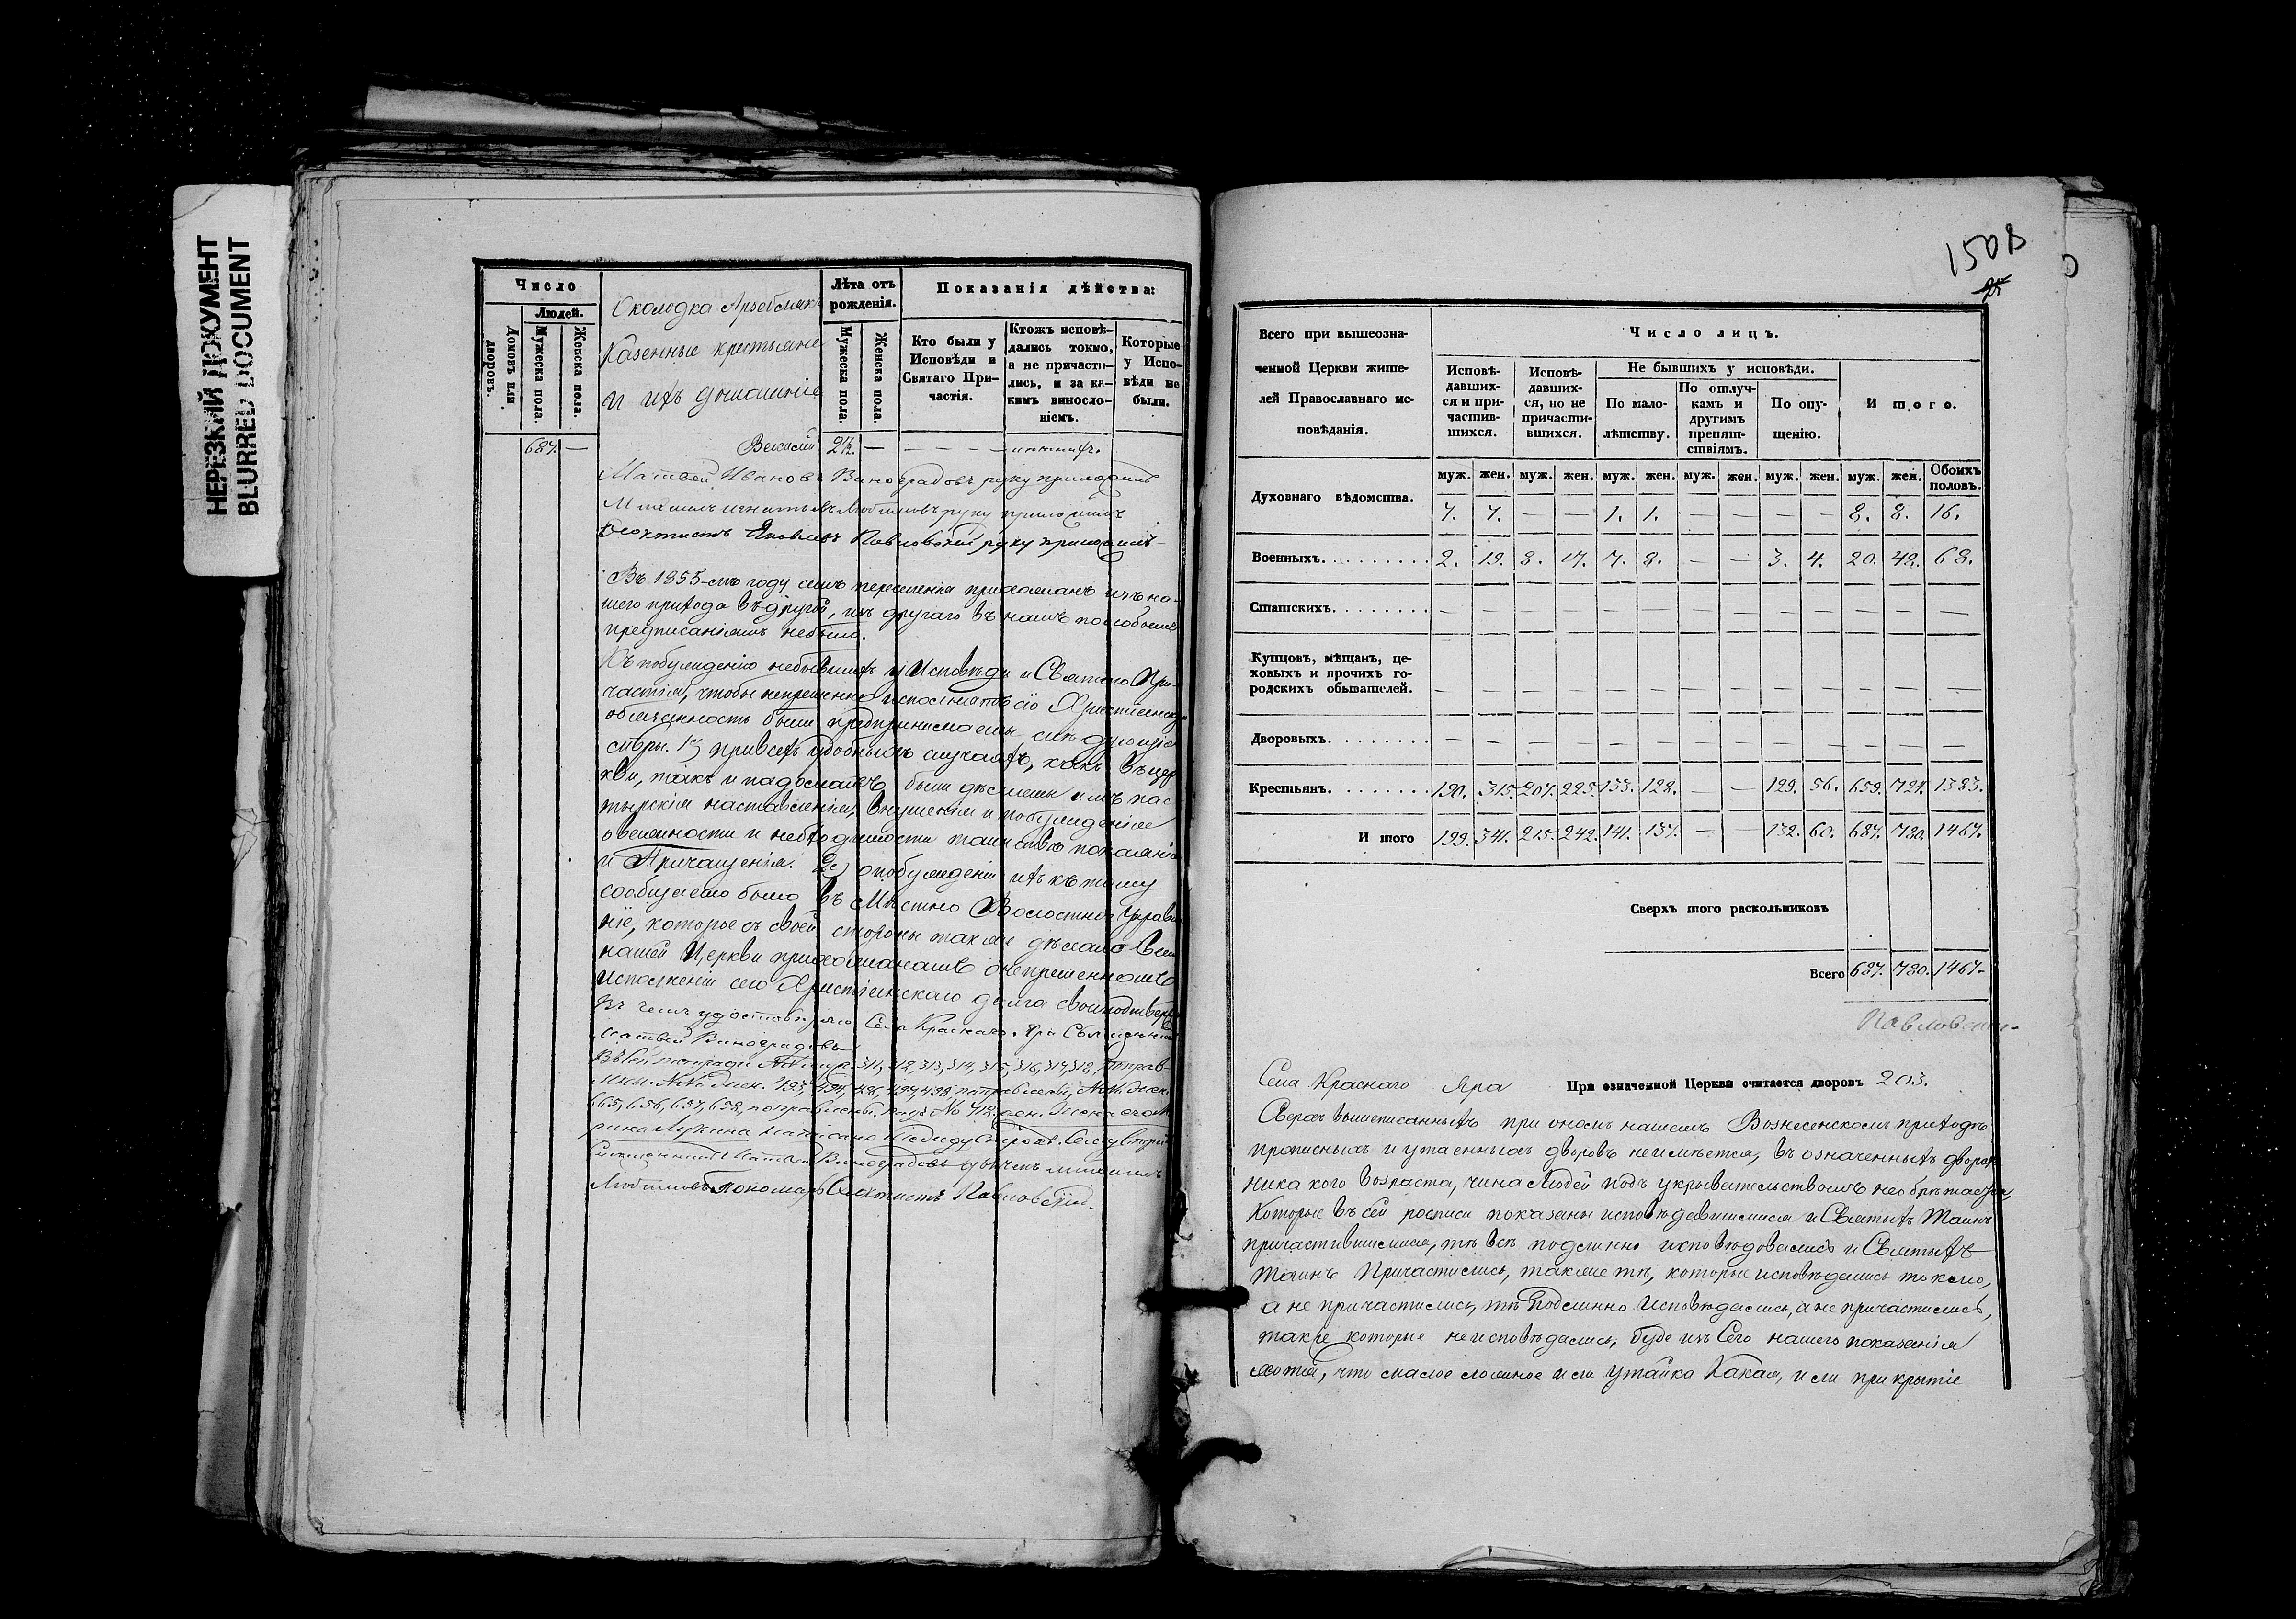 НЕРЕЗКИЙ ДОКУМЕНТ
BLURRED DOCUMENT
Число
Людей.
Домовъ или дворовъ.
Мужеска пола.
Женска пола.
Околодка
Казенные крестьяне
и ихъ домашніе
Лѣта отъ рожденія.
Мужеска пола.
Женска пола.
Показанія дѣйства:
Кто были у Исповѣди и Святаго Причастія.
Ктожъ исповѣдались токмо, а не причастились, и за какимъ винословіемъ.
Которые у Исповѣди не были.
687. —
— — — —
Матвей Ивановъ Виноградовъ руку приложилъ
Михаилъ Игнатьевъ Любимовъ руку приложилъ
Феоктистъ Яковлевъ Павловскій руку приложилъ
Въ 1855-мъ году симъ переселенія прихожанъ изъ на-
шего прихода въ другой, изъ другаго въ нашъ по особымъ
предписаніямъ небыло.
Къ побужденію небывшихъ у Исповѣди и Святаго При-
частія, чтобы непременно исполняли сію Христіанскую
обязанность были предпринимаемы слѣдующія
мѣры. 1е) при всѣхъ удобныхъ случаяхъ, какъ въ цер-
кви, такъ и на домахъ были дѣланы имъ пас-
тырскія наставленія, внушенія и побужденія
о важности и необходимости таинствъ покаянія
и Причащенія. 2е) о побужденіи ихъ къ тому
сообщаемо было въ Мѣстно Волостное Управле-
ніе, которое съ своей стороны также дѣлало всем
нашей Церкви прихожанамъ о непременномъ
исполненіи сего Христіанскаго долга свои подтвер-
Въ чемъ удостовѣряю Села Краснаго Яра Священникъ
Матвей Виноградовъ
Въ сей тетради №№ муж. 311, 312, 313, 314, 315, 316, 317, 318, поправ-
лены. №№ жен. 423, 424, 426, 427, 428, поправлены, №№ жен.
655, 656, 657, 658, поправлены.
Священникъ Матвей Виноградовъ
Любимовъ Пономарь Феоктистъ Павловскій.
150В
Всего при вышеозна-
ченной Церкви жите-
лей Православнаго ис-
повѣданія.
Число лицъ.
Исповѣдавшихся и причастившихся.
Исповѣдавшихся, но не причастившихся.
Не бывшихъ у исповѣди.
По малолѣтству.
По отлучкамъ и другимъ препятствіямъ.
По опущенію.
Итого.
муж. жен. муж. жен. муж. жен. муж. жен. муж. жен. муж. жен. Обоихъ половъ.
Духовнаго вѣдомства. 7. 7. — — 1. 1. — — — — 8. 8. 16.
Военныхъ. 2. 19. 8. 17. 7. 8. — — 3. 4. 20. 48. 68.
Статскихъ. — — — — — — — — — — — — —
Купцовъ, мѣщанъ, це-
ховыхъ и прочихъ го-
родскихъ обывателей. — — — — — — — — — — — — —
Дворовыхъ. — — — — — — — — — — — — —
Крестьянъ. 190. 315. 207. 225. 133. 128. — — 129. 56. 659. 724. 1383.
Итого 199. 341. 215. 242. 141. 137. — — 132. 60. 687. 780. 1467.
Сверхъ того раскольниковъ
Всего 687. 780. 1467.
Павловскій
Села Краснаго Яра При означенной Церкви считается дворовъ 203.
Сверхъ вышеписанныхъ при ономъ нашемъ Вознесенскомъ приходѣ
прописныхъ и утаенныхъ дворовъ неимѣется, въ означенныхъ дворахъ
никакого возраста, чина людей подъ укрывательствомъ необрѣтается,
Которые въ сей росписи показаны исповѣдавшимися и Святыхъ Таинъ
причастившимися, тѣ всѣ подлинно исповѣдовались и Святыхъ
Таинъ Причастились, также тѣ, которые исповѣдались токмо,
а не причастились, тѣ подлинно Исповѣдались, а не причастились,
также которые неисповѣдались, буде изъ Сего нашего показанія
хотяй, что малое ложное или утайка Какая, или прикрытіе